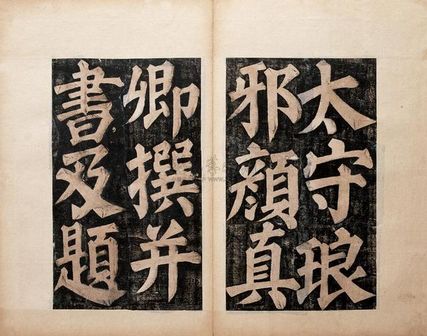 太守琅
邪顔真
卿撰并
書及題